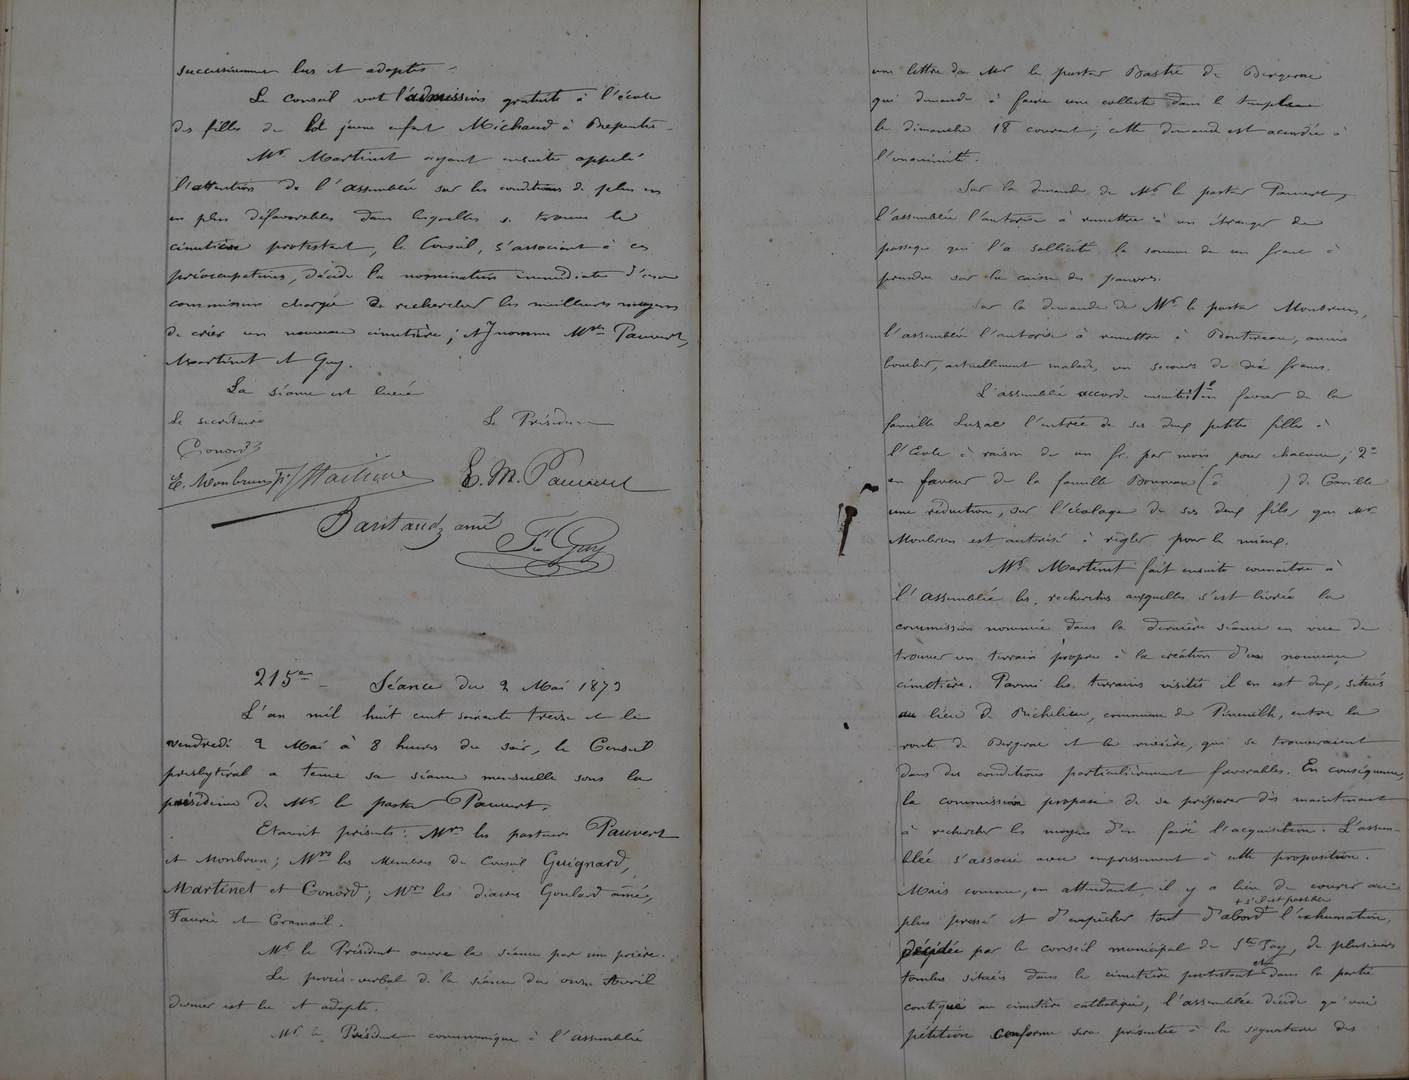 successivement lus et adoptés.
Le Conseil vote l'admission gratuite à l'école
des filles de la jeune enfant Michaud à
Mr. Martinet ayant ensuite appelé
l'attention de l'assemblée sur les conditions de plus en
en plus défavorables dans lesquelles se trouve le
cimetière protestant, le Conseil, s'associant à ces
préoccupations, décide la nomination immédiate d'une
commission chargée de rechercher les meilleurs moyens
de créer un nouveau cimetière; et y nomme Mrs Pauvert,
Martinet et Guy.
La séance est levée
Le secrétaire Le Président
Conord
E. Monbrun E. M. Pauvert
Baritaud ainé
Guy
215e — Séance du 2 Mai 1873
L'an mil huit cent soixante treize et le
vendredi 2 Mai à 8 heures du soir, le Conseil
presbytéral a tenu sa séance mensuelle sous la
présidence de Mr. le pasteur Pauvert.
Etaient présents: Mrs les pasteurs Pauvert
et Monbrun; Mrs les Membres du Conseil Guignard,
Martinet et Conord; Mrs les diacres Goulard ainé,
Faurie et Cramail.
Mr. le Président ouvre la séance par une prière.
Le procès-verbal de la séance du onze Avril
dernier est lu et adopté.
Mr le Président communique à l'assemblée
une lettre de Mr le pasteur Bastie de Bergerac
qui demande à faire une collecte dans le temple
le dimanche 18 courant; cette demande est accordée à
l'unanimité.
Sur la demande de Mr le pasteur Pauvert,
l'assemblée l'autorise à remettre à un étranger de
passage qui l'a sollicité la somme de un franc à
prendre sur la caisse des pauvres.
Sur la demande de Mr le pasteur Monbrun,
l'assemblée l'autorise à remettre à ancien
actuellement malade, un secours de dix francs.
L'assemblée accorde ensuite 1e en faveur de la
famille Luzac l'entrée de ses deux petites filles à
l'Ecole à raison de un fr. par mois pour chacune; 2e
en faveur de la famille ( ) de Camille
une réduction, sur l'écolage de ses deux fils, que Mr
Monbrun est autorisé à régler pour le mieux.
Mr. Martinet fait ensuite connaître à
l'Assemblée les recherches auxquelles s'est livrée la
commission nommée dans la dernière séance en vue de
trouver un terrain propre à la création d'un nouveau
cimetière. Parmi les terrains visités il en est deux, situés
au lieu de Richelieu, commune de Pineuilh, entre la
route de Bergerac et la rivière, qui se trouveraient
dans des conditions particulièrement favorables. En conséquence,
la commission propose de se préparer dès maintenant
à rechercher les moyens d'en faire l'acquisition. L'assem-
blée s'associe avec empressement à cette proposition.
Mais comme, en attendant, il y a lieu de courir au
+ s'il est possible
plus pressé et d'empêcher tout d'abord + l'exhumation,
décidée par le conseil municipal de Ste Foy, de plusieurs
tombes situées dans le cimetière protestant et dans la partie
contiguë au cimetière catholique, l'assemblée décide qu'une
pétition conforme sera présentée à la signature des